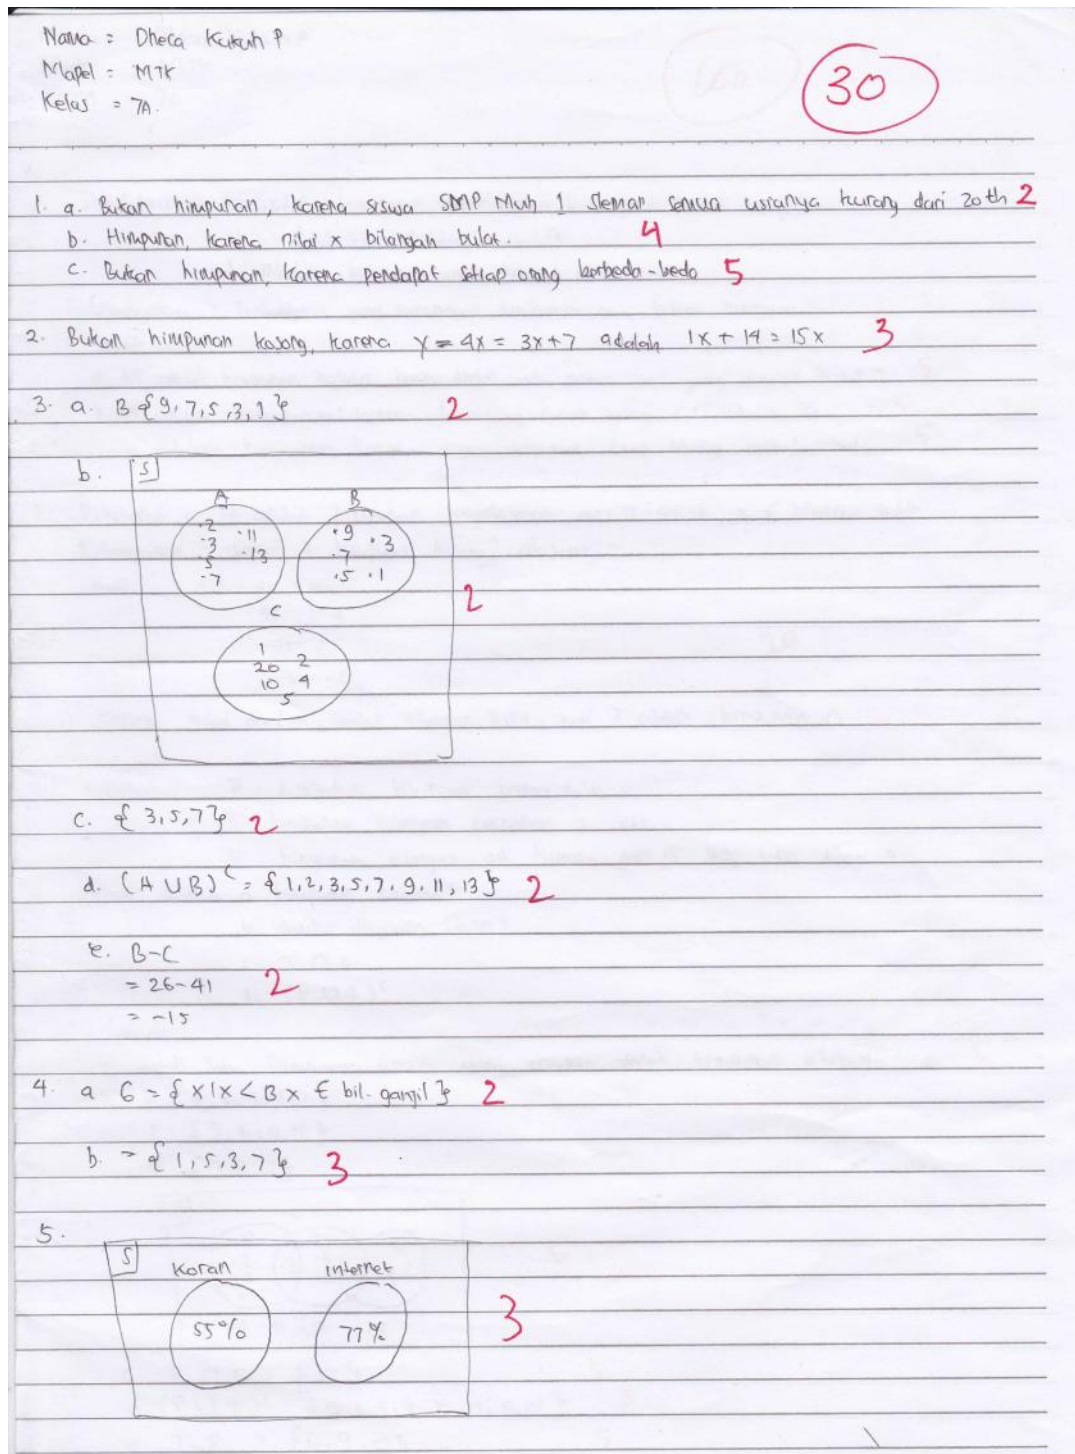 Nama = Dheca Kukuh P
Mapel = MTK
Kelas = 7A.
30
1. a. Bukan himpunan, karena siswa SMP Muh 1 Sleman semua usianya kurang dari 20 th 2
b. Himpunan, karena nilai x bilangan bulat. 4
c. Bukan himpunan, karena pendapat setiap orang berbeda-beda 5
2. Bukan himpunan kosong, karena y = 4x = 3x + 7 adalah 1x + 14 = 15x 3
3. a. B {9, 7, 5, 3, 1} 2
b. S
A B
.2 .11 .9 .3
.3 .13 .7
.5 .5 .1
.7
2
C
1
20 2
10 4
5
c. {3, 5, 7} 2
d. (A ∪ B)ᶜ = {1, 2, 3, 5, 7, 9, 11, 13} 2
e. B-C
= 26-41 2
= -15
4. a 6 = {x | x < B x ∈ bil. ganjil} 2
b. = {1, 5, 3, 7} 3
5.
S Koran internet
55% 77% 3